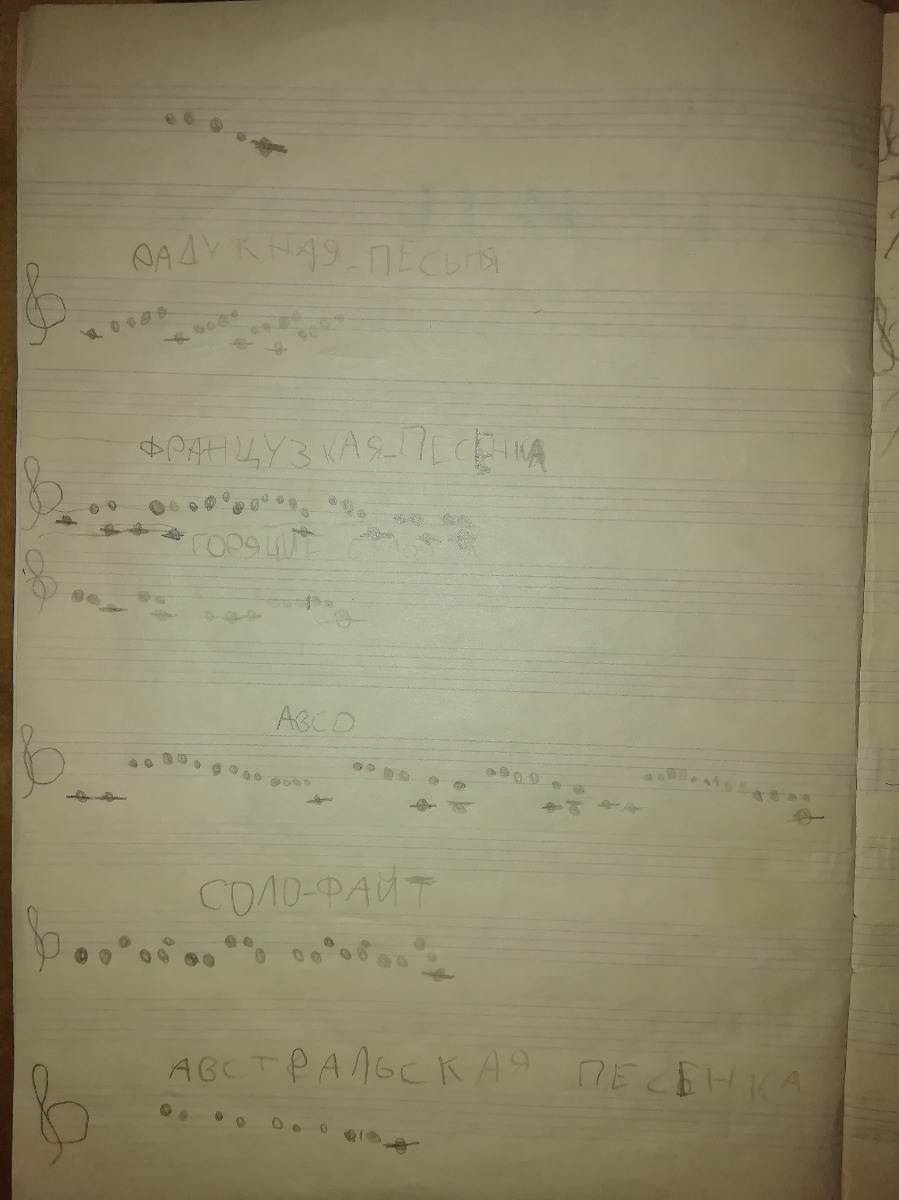 РАДУЖНАЯ-ПЕСЬНЯ
ФРАНЦУЗКАЯ-ПЕСЕНКА
ГОРЯЩИЕ
ABCD
СОЛО-ФАЙТ
АВСТРАЛЬСКАЯ ПЕСЕНКА